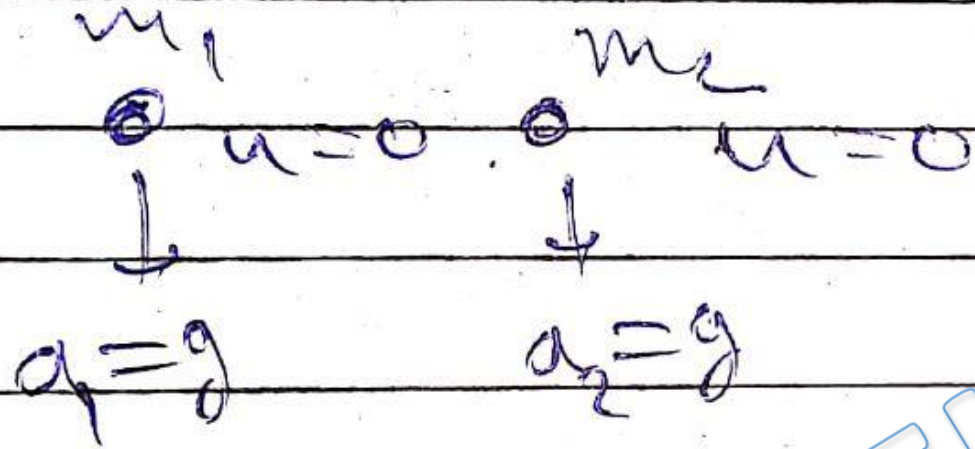 m₁ m₂
u=0 u=0
a₁=g a₂=g